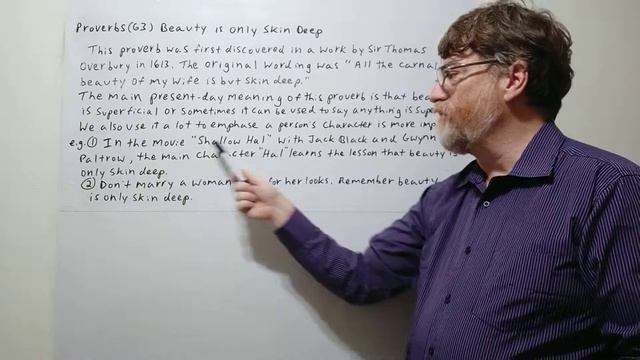 Proverbs(63) Beauty is Only Skin Deep
This proverb was first discovered in a work by Sir Thomas
Overbury in 1613. The original wording was "All the carnal
beauty of my wife is but skin deep."
The main present-day meaning of this proverb is that
is superficial or sometimes it can be used to say anything is
We also use it a lot to emphase a person's character is more
e.g. ① In the movie "Shallow Hal" with Jack Black and
Paltrow, the main character "Hal" learns the lesson that beauty is
only skin deep.
② Don't marry a woman for her looks. Remember beauty
is only skin deep.